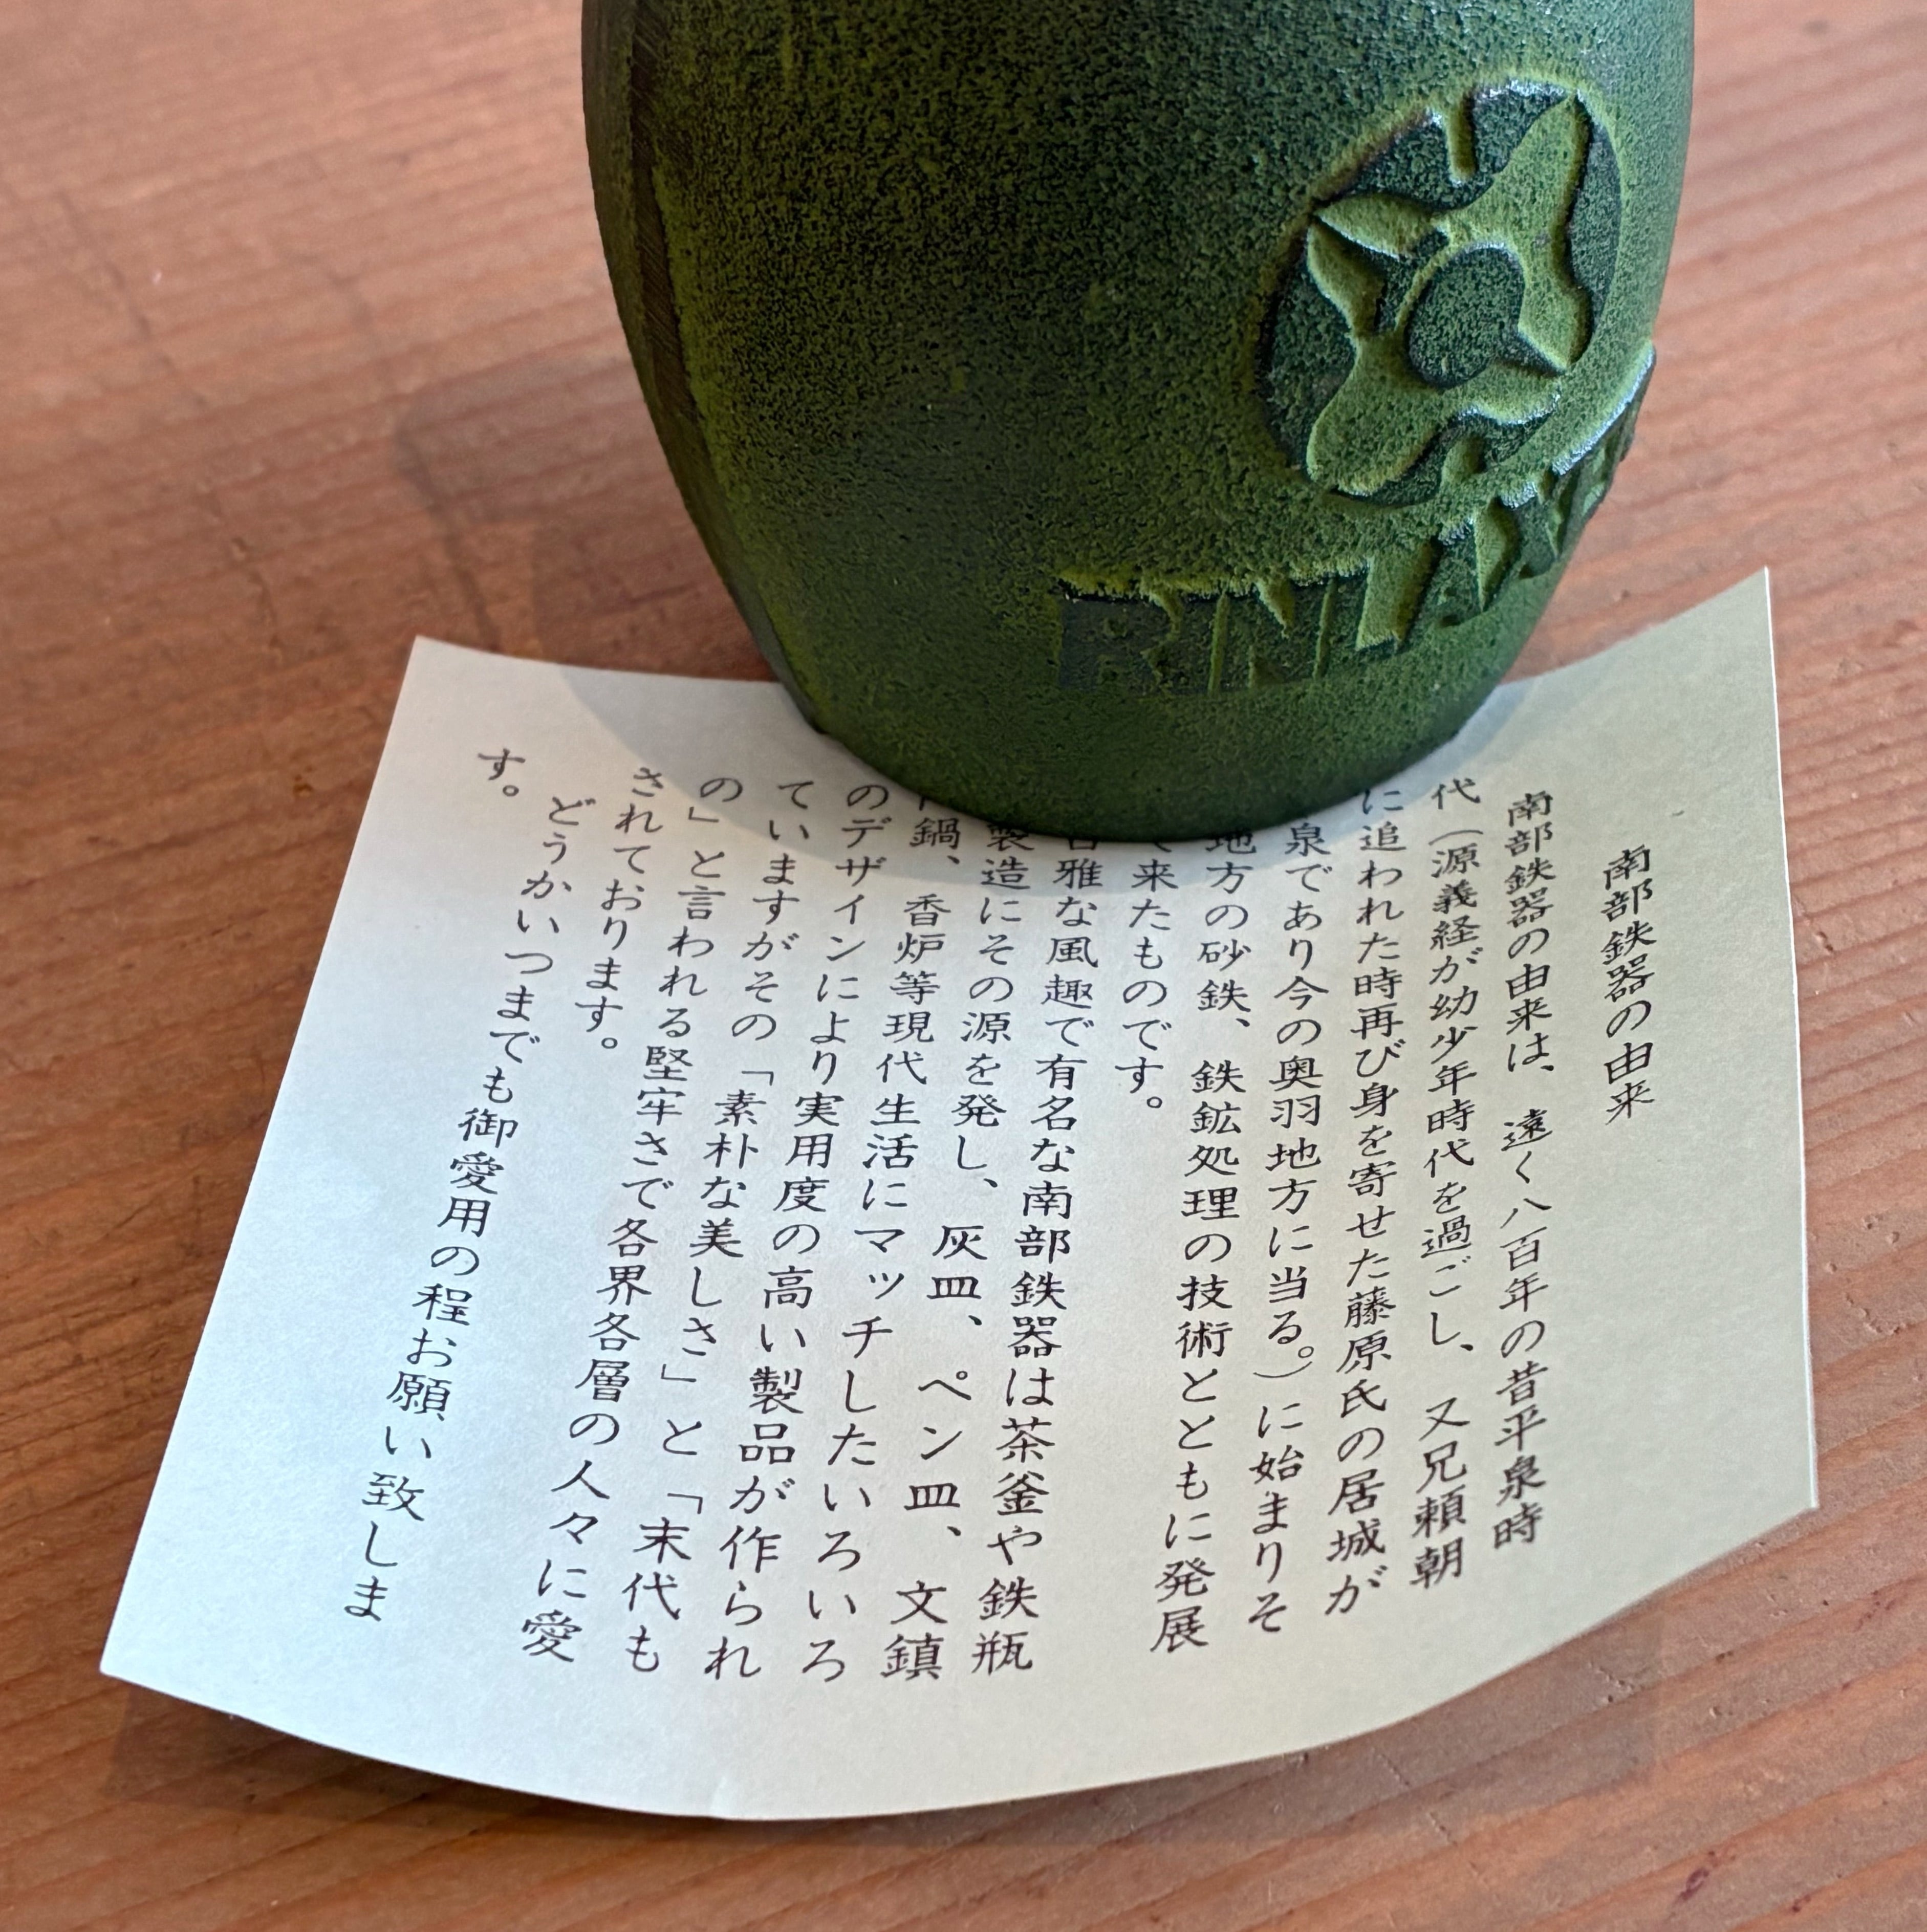 南部鉄器の由来
南部鉄器の由来は、遠く八百年の昔平泉時
代（源義経が幼少年時代を過ごし、又兄頼朝
に追われた時再び身を寄せた藤原氏の居城が
泉であり今の奥羽地方に当る。）に始まりそ
地方の砂鉄、鉄鉱処理の技術とともに発展
て来たものです。
雅な風趣で有名な南部鉄器は茶釜や鉄瓶
製造にその源を発し、灰皿、ペン皿、文鎮
鍋、香炉等現代生活にマッチしたいろいろ
のデザインにより実用度の高い製品が作られ
ていますがその「素朴な美しさ」と「末代も
の」と言われる堅牢さで各界各層の人々に愛
されております。
どうかいつまでも御愛用の程お願い致しま
す。